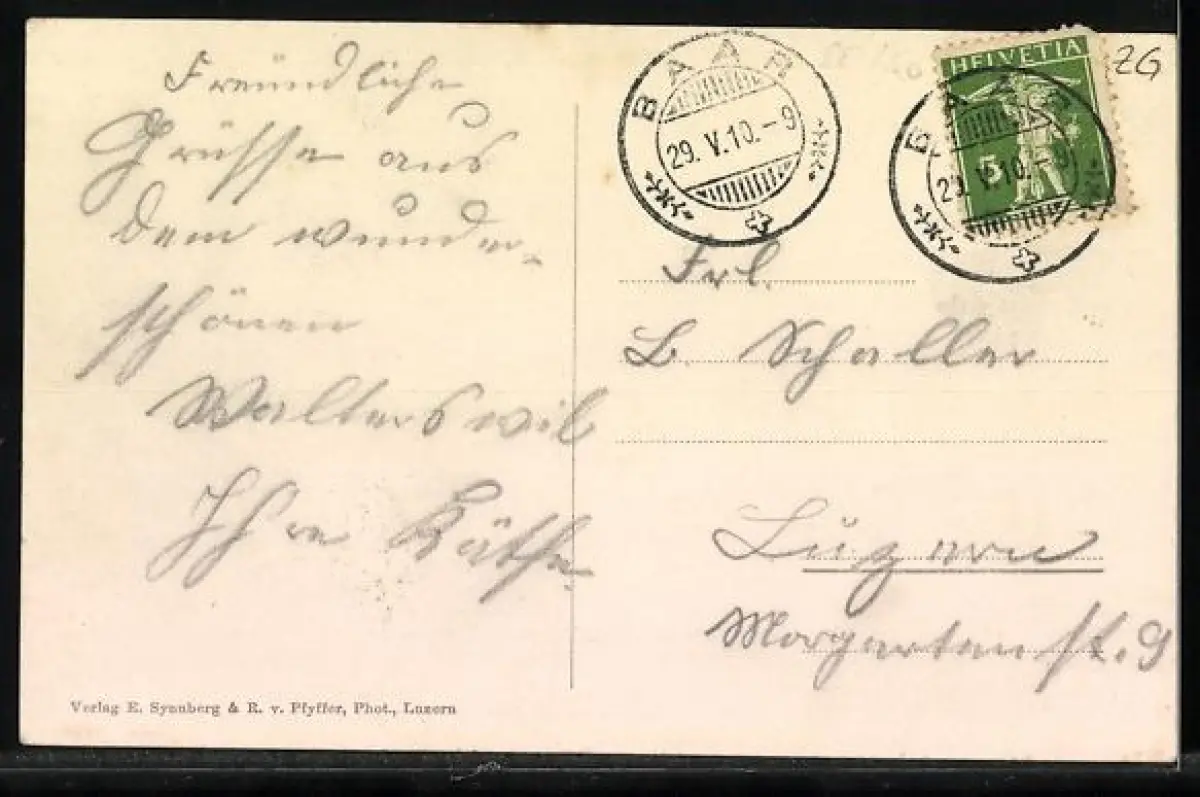 Freündliche
Grüsse aus
dem wunder-
schönen
Walterswil
Ihre Käthe
BAAR
29. V. 10. - 9
HELVETIA
5
BAAR
29. V. 10. - 9
ZG
Frl.
B. Schaller
Luzern
Morgartenst. 9
Verlag E. Synnberg & R. v. Pfyffer, Phot., Luzern